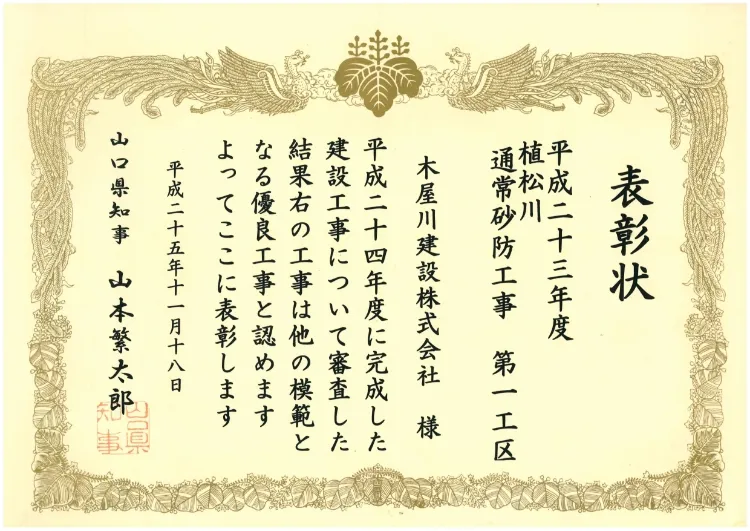 表彰状
平成二十三年度
植松川
通常砂防工事 第一工区
木屋川建設株式会社 様
平成二十四年度に完成した
建設工事について審査した
結果右の工事は他の模範と
なる優良工事と認めます
よってここに表彰します
平成二十五年十一月十八日
山口県知事 山本繁太郎
山口県
知事